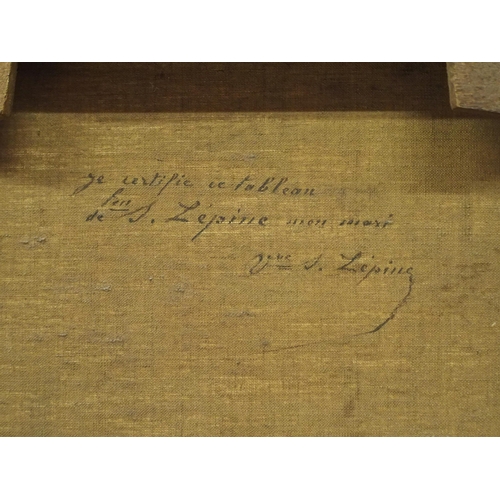 Je certifie ce tableau
de feu S. Lépine mon mari
Vve S. Lépine